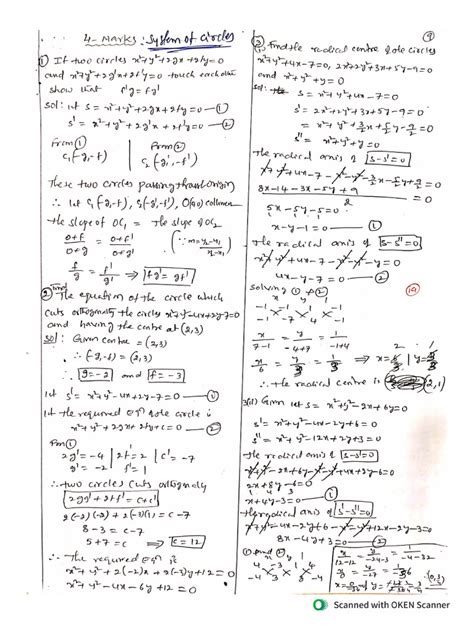 4-Marks: System of circles
① If two circles x²+y²+2gx+2fy=0
and x²+y²+2g'x+2f'y=0 touch each other
show that f'g = fg'
Sol: let S = x²+y²+2gx+2fy=0 —①
S' = x²+y²+2g'x+2f'y=0 —②
From ① | From ②
C₁(-g,-f) | C₂(-g',-f')
These two circles passing through origin
∴ let C₁(-g,-f), C₂(-g',-f'), O(0,0) collinear
the slope of OC₁ = The slope of OC₂
0+f/0+g = 0+f'/0+g' (∵ m = y₂-y₁/x₂-x₁)
f/g = f'/g' ⇒ fg' = gf'
② Find The equation of the circle which
cuts orthogonally the circles x²+y²-4x+2y-7=0
and having the centre at (2,3)
Sol: Given centre = (2,3)
∴ (-g,-f) = (2,3)
∴ g=-2 and f=-3
let S' = x²+y²-4x+2y-7=0 —①
let the required eqn of the circle is
x²+y²+2gx+2fy+c=0 —②
From ①
2g'=-4 | 2f'=2 | c'=-7
g'=-2 | f'=1
∴ two circles cuts orthogonally
2gg'+2ff' = c+c'
2(-2)(-2)+2(-3)(1) = c-7
8-3 = c-7
5+7 = c ⇒ c=12
∴ The required eqn is
x²+y²+2(-2)x+2(-3)y+12=0
x²+y²-4x-6y+12=0
9
② Find the radical centre of the circles
x²+y²+4x-7=0, 2x²+2y²+3x+5y-9=0
and x²+y²+y=0
Sol: S = x²+y²+4x-7=0
S' = 2x²+2y²+3x+5y-9=0
= x²+y²+3/2x+5/2y-9/2=0
S'' = x²+y²+y=0
the radical axis of S-S'=0
x²+y²+4x-7-x²-y²-3/2x-5/2y+9/2=0
8x-14-3x-5y+9/2 = 0
5x-5y-5=0
x-y-1=0 —①
The radical axis of S-S''=0
x²+y²+4x-7-x²-y²-y=0
4x-y-7=0 —②
solving ① & ②
10
x y 1
-1 -1 1 -1
-1 -7 4 -1
x/7-1 = y/-4+7 = 1/-1+4
x/6 = y/3 = 1/3 ⇒
∴ the radical centre is (2,1)
3(a) Given let S = x²+y²-2x+6y=0
S' = x²+y²-4x-2y+6=0
S'' = x²+y²-12x+2y+3=0
The radical axis of S-S'=0
x²+y²-2x+6y-x²-y²+4x+2y-6=0
2x+8y-6=0
x+4y-3=0 —①
the radical axis of S'-S''=0
x²+y²-4x-2y+6-x²-y²+12x-2y-3=0
8x-4y+3=0 —②
x y 1
Scanned with OKEN Scanner